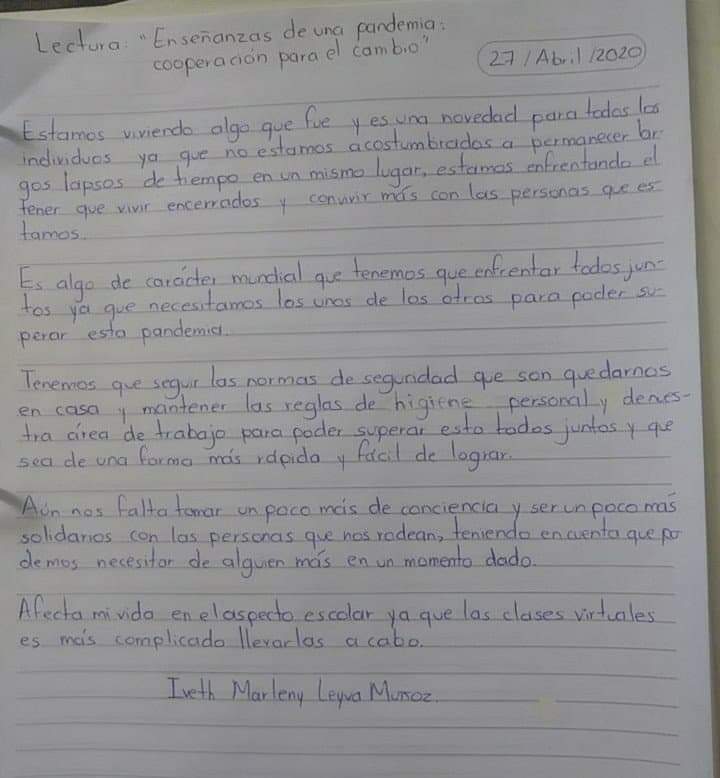 Lectura: "Enseñanzas de una pandemia:
cooperación para el cambio"
27/Abril/2020
Estamos viviendo algo que fue y es una novedad para todos los
individuos ya que no estamos acostumbrados a permanecer lar-
gos lapsos de tiempo en un mismo lugar, estamos enfrentando el
tener que vivir encerrados y convivir más con las personas que es-
tamos.
Es algo de carácter mundial que tenemos que enfrentar todos jun-
tos ya que necesitamos los unos de los otros para poder su-
perar esta pandemia.
Tenemos que seguir las normas de seguridad que son quedarnos
en casa y mantener las reglas de higiene personal y de nues-
tra área de trabajo para poder superar esto todos juntos y que
sea de una forma más rápida y fácil de lograr.
Aún nos falta tomar un poco más de conciencia y ser un poco más
solidarios con las personas que nos rodean, teniendo en cuenta que po
demos necesitar de alguien más en un momento dado.
Afecta mi vida en el aspecto escolar ya que las clases virtuales
es más complicado llevarlas a cabo.
Iveth Marleny Leyva Muñoz.